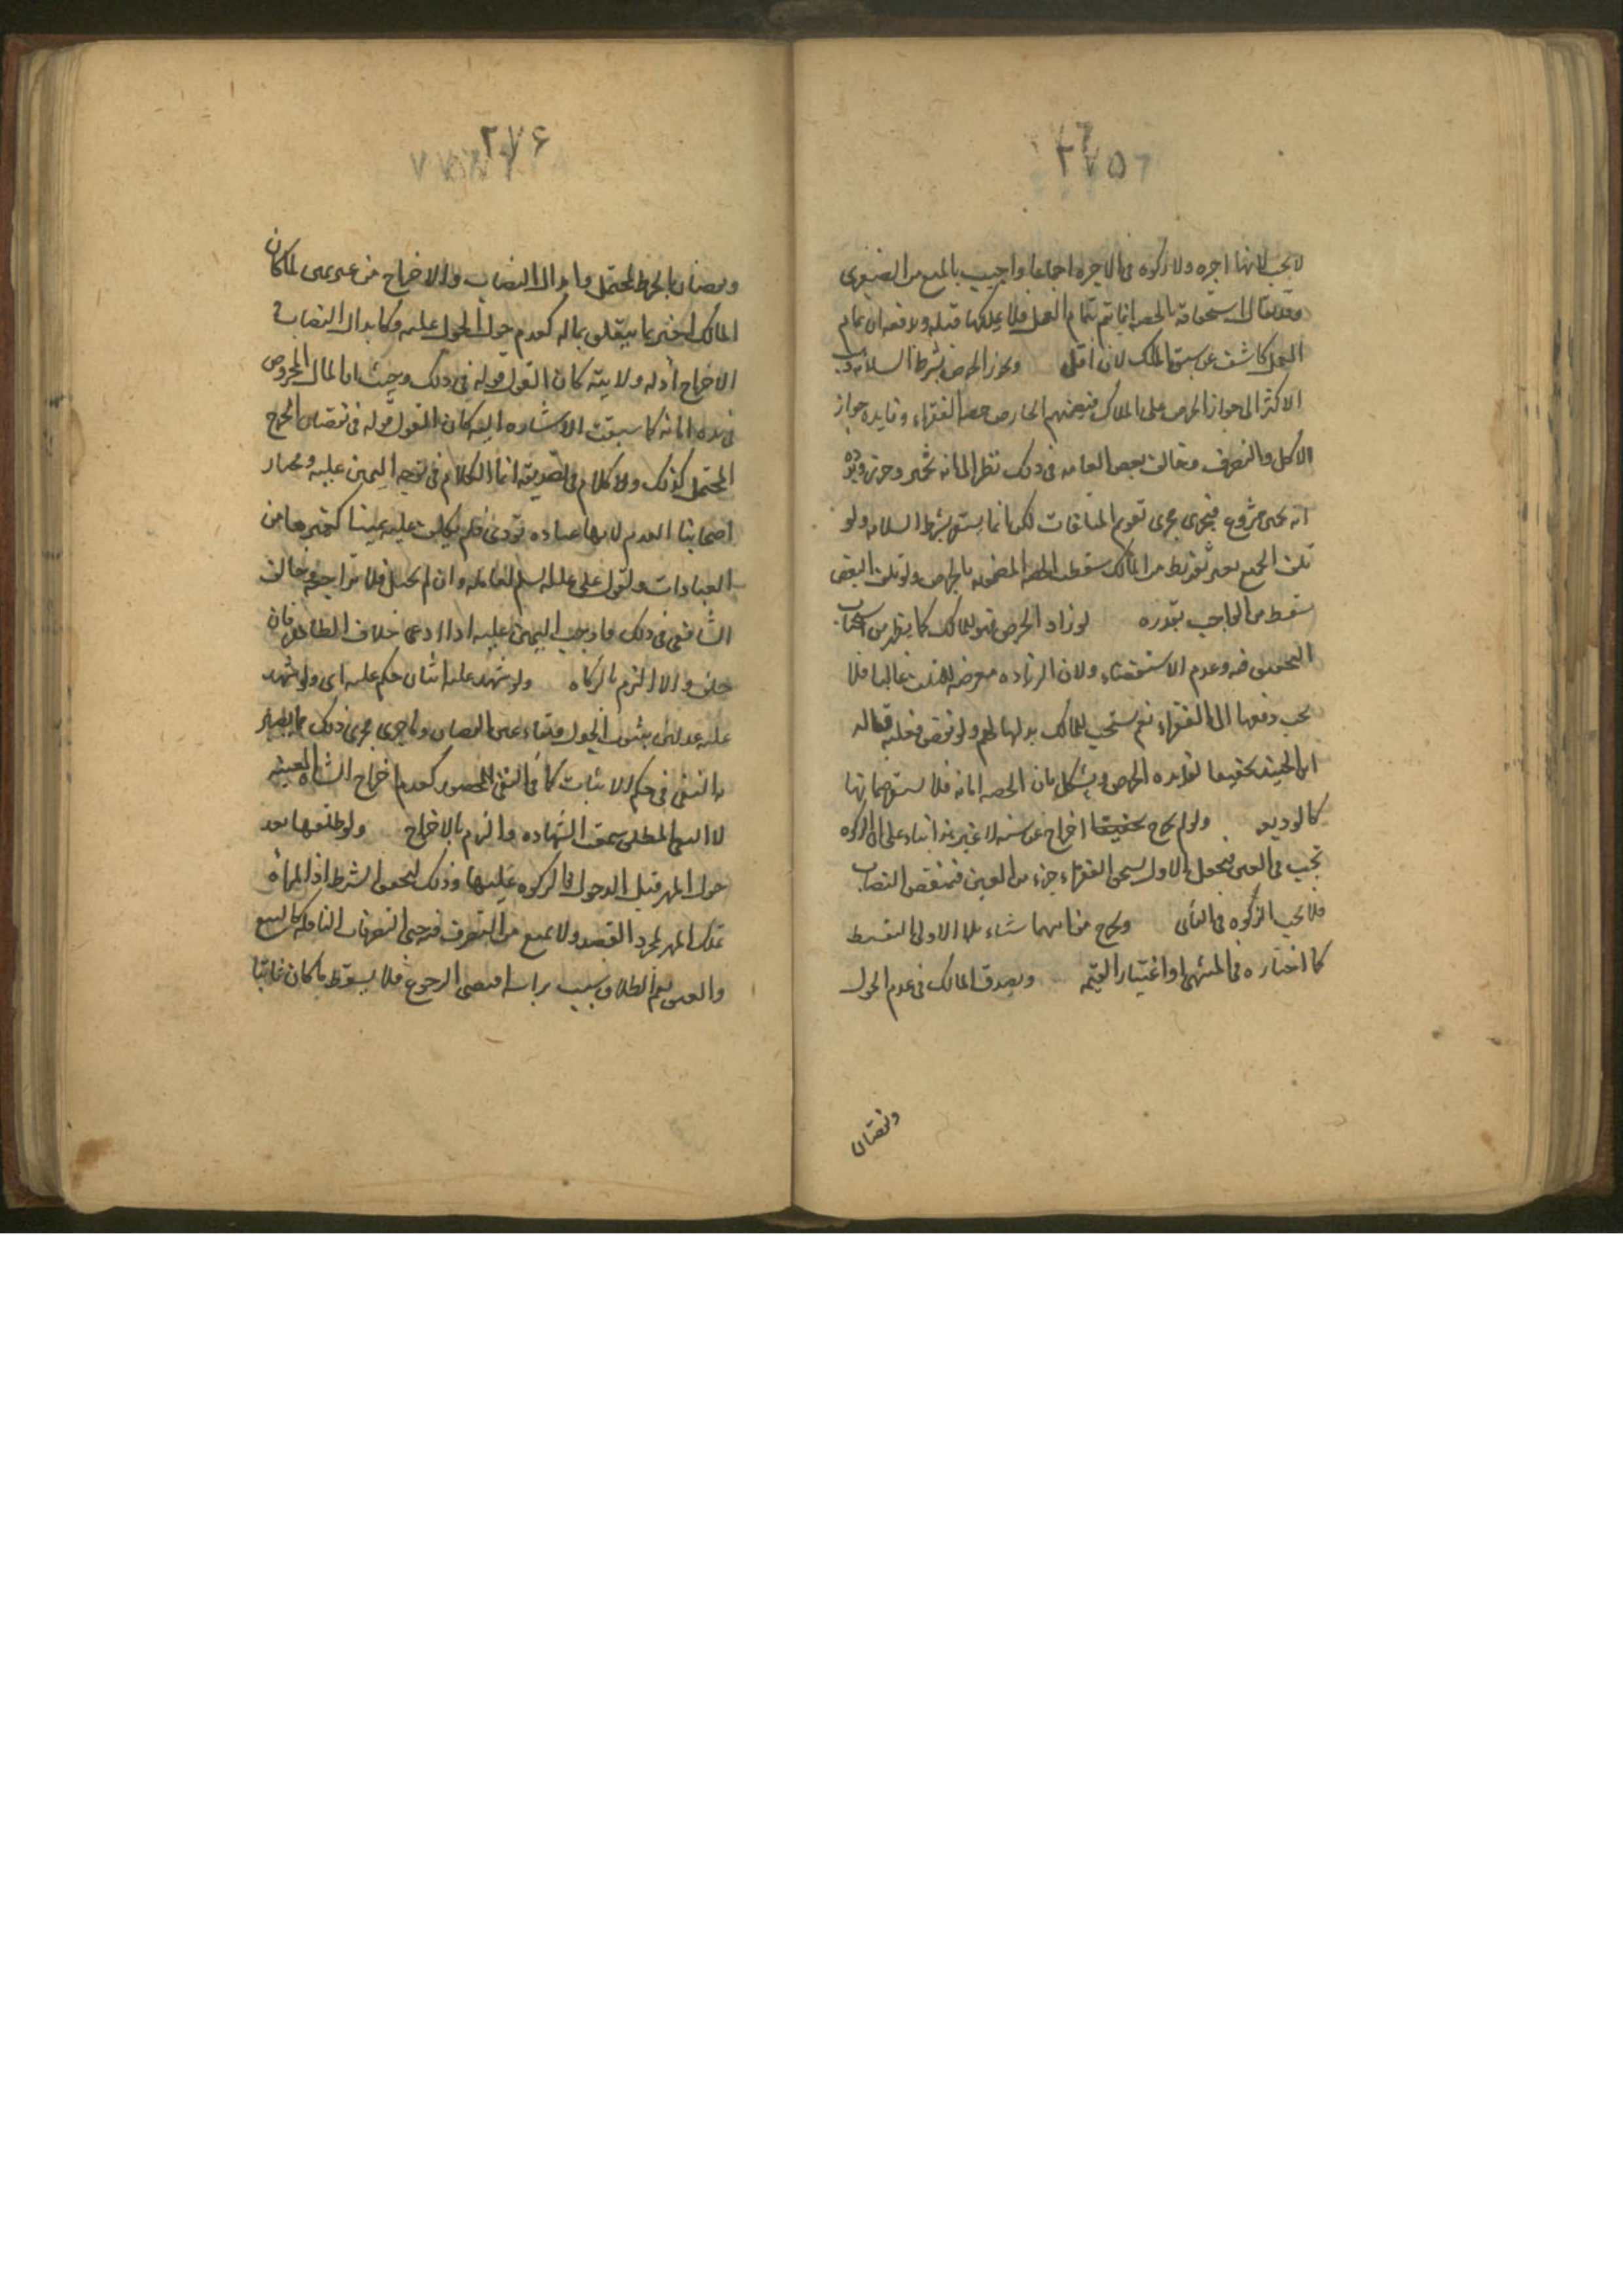 ٢٧٥
لا يجب لانها اجره ولا زكوه فى الاجره اجماعا واجيب بالمنع من الصغرى
وقد يقال استحقاقه بالحصه انما يتم بتمام العمل فلا يملكها قبله ولا فعه ان تمام
العمل كاشف عن سبق الملك لان اقل ويجوز الخرص بشرط السلامه ذهب
الاكثر الى جواز الخرص على الملاك فيضمنهم الخارص حصه الفقراء وفايده جواز
الاكل والتصرف وخالف بعض العامه فى ذلك نظرا الى انه تخمين وحزر ويرده
انه تخمين مشروع فيجرى مجرى تقويم المتلفات لكن انما يستقر بشرط السلامه ولو
تلف الجميع بغير تفريط من المالك سقطت الحصه المضمونه بالخرص ولو تلف البعض
سقط من الواجب بقدره لو زاد الخرص فهو للمالك كما يظهر من استحباب
التخفيف فيه وعدم الاستقصاء ولان الزياده معرضه للتلف غالبا فلا
يجب دفعها الى الفقراء نعم يستحب للمالك بذلها لهم ولو نقص فعليه قاله
ابن الجنيد تحقيقا لفايده الخرص ويشكل بان الحصه امانه فلا يستقر ضمانها
كالوديعه ولو لم يخرج تحقيقا اخراج عن سنه لا غير بناء على ان الزكوه
تجب فى العين فبحول الاول يستحق الفقراء جزء من العين فينقص النصاب
فلا تجب الزكوه فى الثانى ويخرج من ايهما شاء الاولى التقسيط
كما اختاره فى المنتهى او اعتبار القيمه ويصدق المالك فى عدم الحول
ونقصان
٢٧۶
ونقصان الخرص المحتمل وابدال النصاب والاخراج من غير يمين لما كان
المالك اخبر بما يتعلق بماله كعدم حول الحول عليه وكابدال النصاب فى
الاخراج اذ له ولايته كان القول قوله فى ذلك وحيث ان المال المخروص
فى يده امانه كما سبقت الاشاره اليه كان القول قوله فى نقصان الخرج
المحتمل كذلك ولا كلام فى تصديقه انما الكلام فى توجه اليمين عليه ومختار
اصحابنا العدم لانها عباده تؤدى فلم يكلف عليه يمينا كغيرها من
العبادات ولقول على عليه السلم لعامله وان لم تحمل فلا تراجعه وخالف
الشافعى فى ذلك فاوجب اليمين عليه اذا ادعى خلاف الظاهر فان
حلف والا الزم بالزكاه ولو شهد عليه اثنان حكم عليه اى ولو شهد
عليه عدلان بثبوت الحول وبقاء عين النصاب وما جرى مجرى ذلك مما يصير
به النفى فى حكم الاثبات كما فى النفى المحصور كعدم اخراج الشاه المعينه
لا النفى المطلق سمعت الشهاده والزم بالاخراج ولو طلقها بعد
حول المهر قبل الدخول فالزكوه عليها وذلك لتحقق الشرط اذ المراه
تملك المهر بمجرد العقد ولا تمنع من التصرف فيه حتى التصرفات الناقله كالبيع
والعتق نعم الطلاق سبب براسه اقتضى الرجوع فلا يسقط ما كان ثابتا